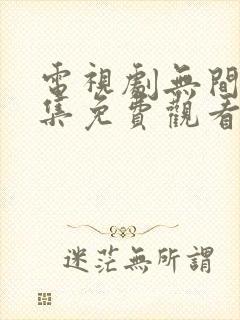 電視劇無間
集免費觀看
迷茫無所謂